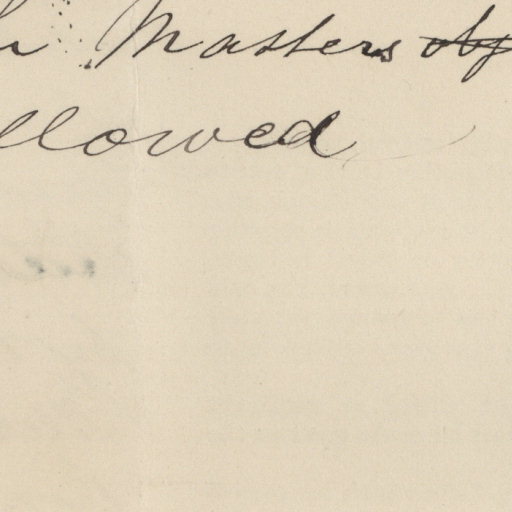 Masters
llowed